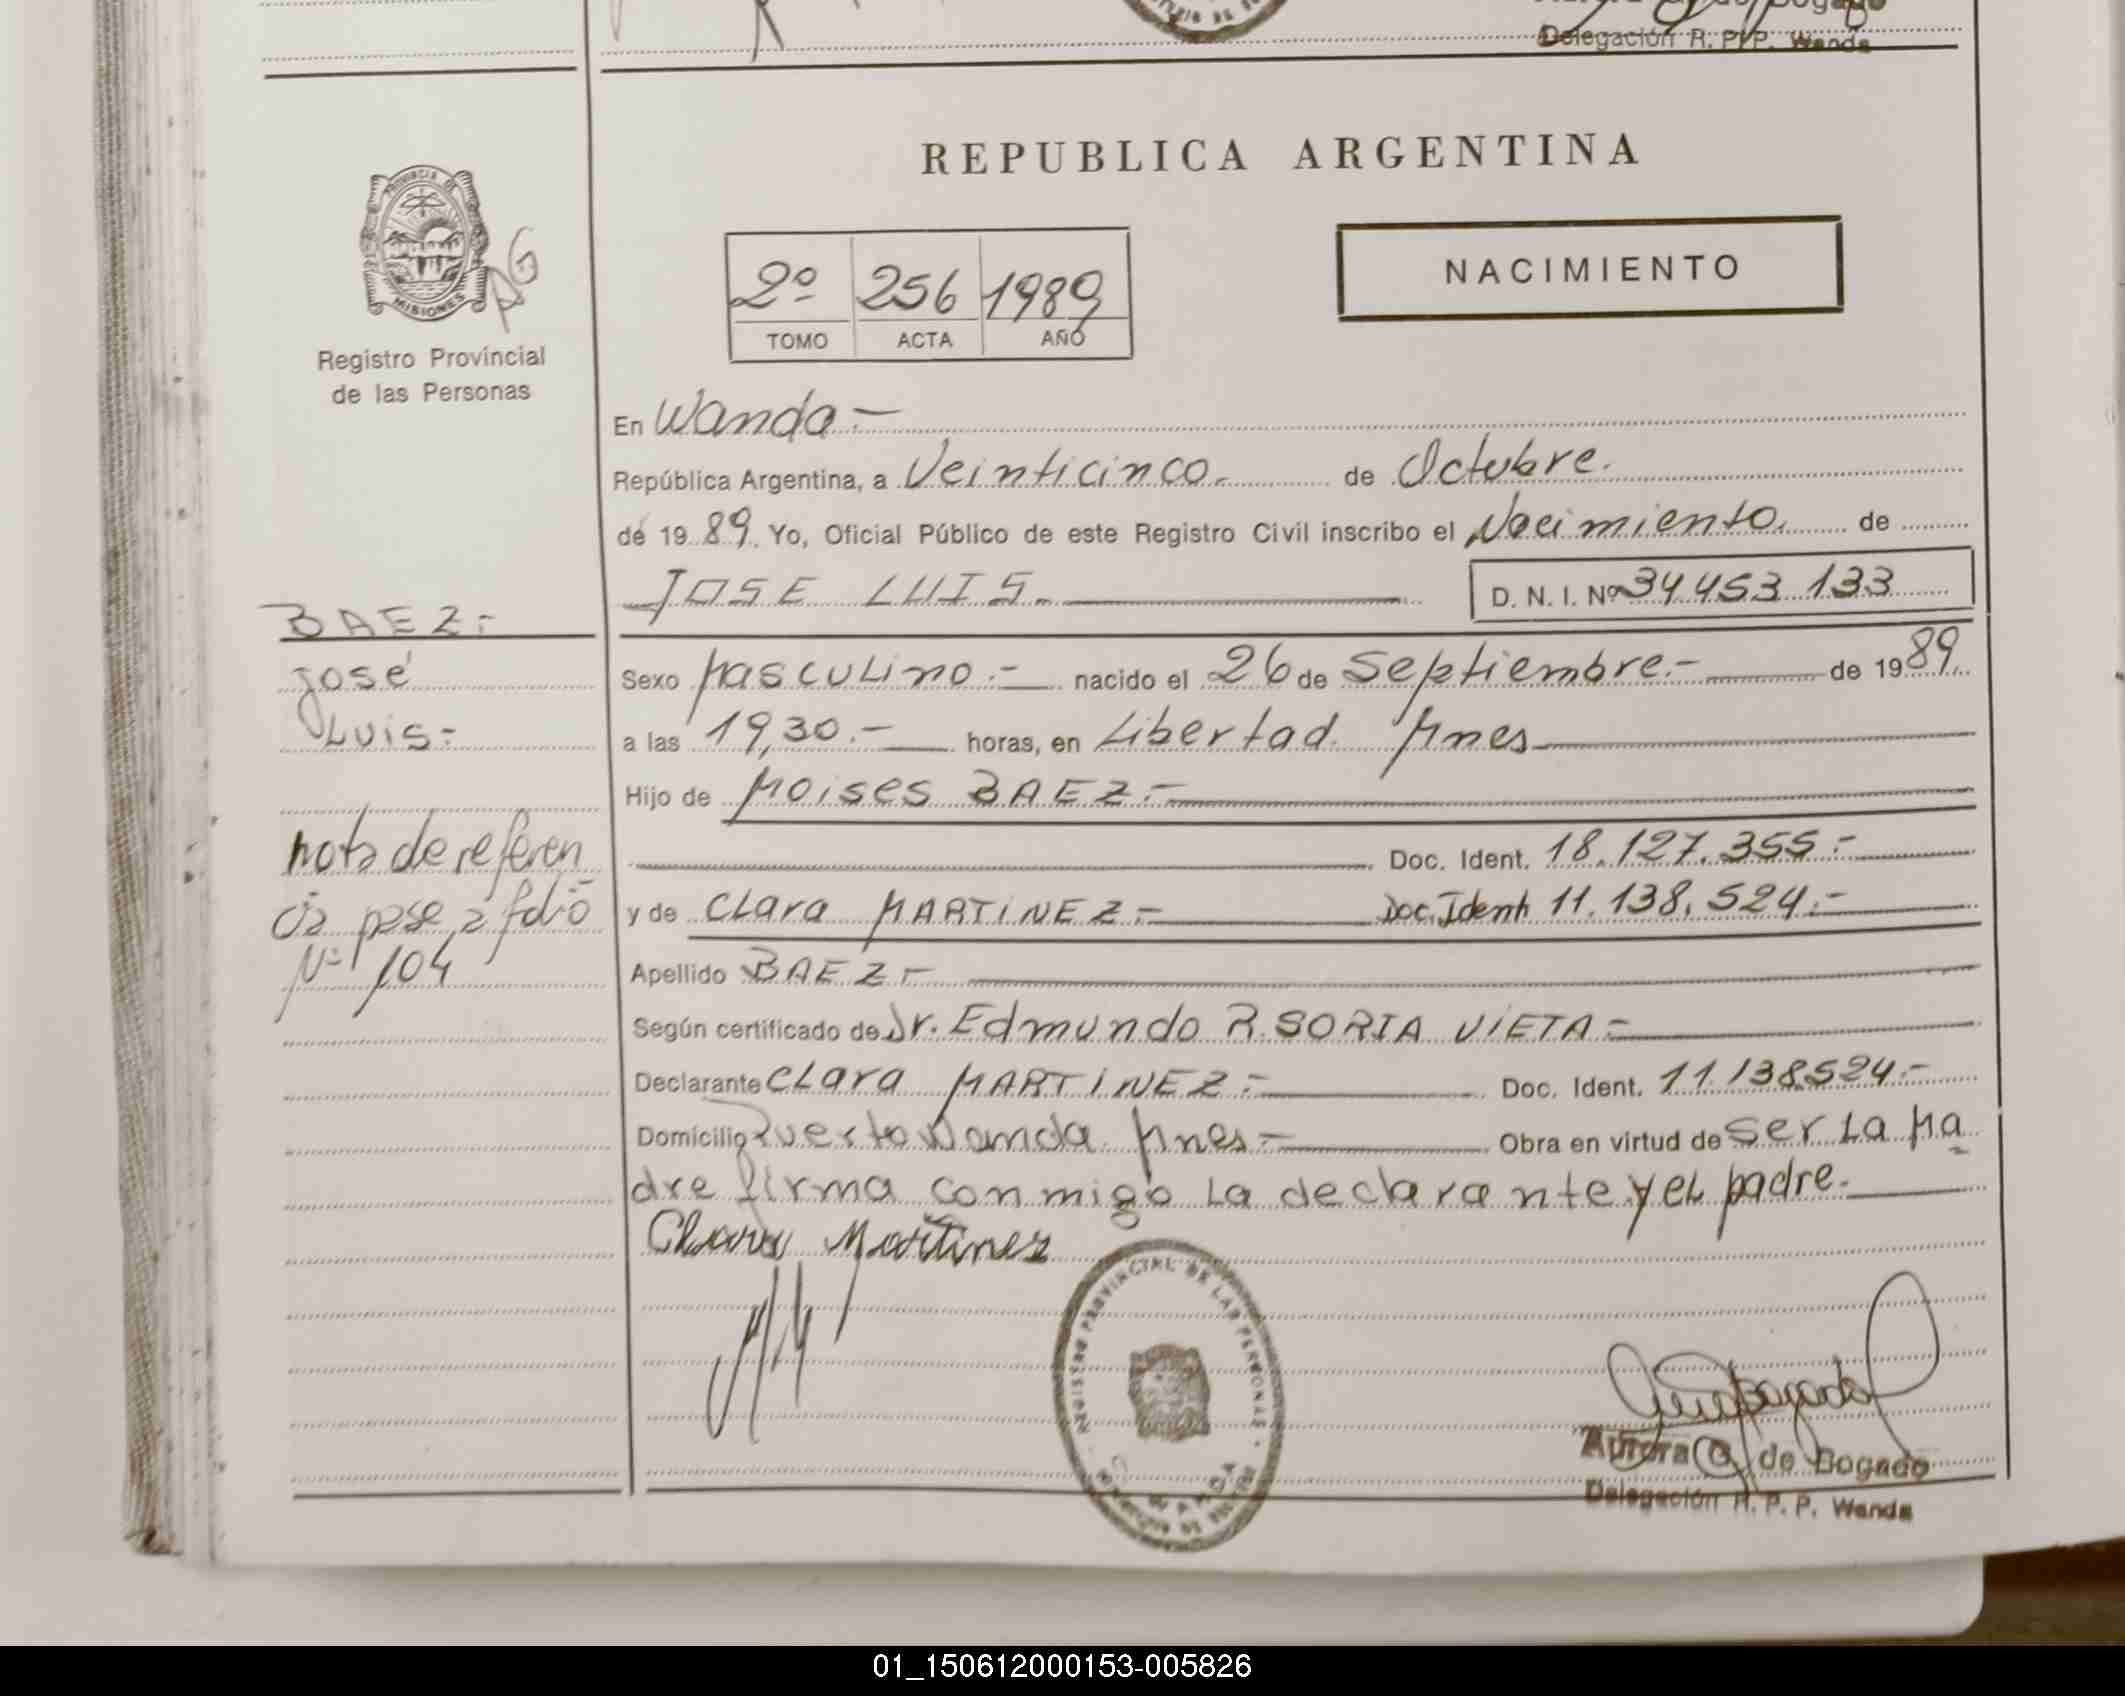 Delegación R. P. P. Wanda
REPUBLICA ARGENTINA
PROVINCIA DE
MISIONES
Registro Provincial
de las Personas
2º 256 1989
TOMO ACTA AÑO
NACIMIENTO
En Wanda.-
República Argentina, a Veinticinco.- de Octubre.
de 19 89. Yo, Oficial Público de este Registro Civil inscribo el Nacimiento. de
JOSE LUIS.- D. N. I. Nº 34 453 133
BAEZ.-
José
Luis.-
Sexo Masculino.- nacido el 26 de Septiembre.- de 19 89.
a las 19,30.- horas, en Libertad Mnes
Hijo de Moises BAEZ.-
Doc. Ident. 18.127.355.-
y de Clara MARTINEZ.- Doc. Ident 11.138.524.-
nota de referen
cia pase a folio
Nº 104
Apellido BAEZ.-
Según certificado de Dr. Edmundo R. SORIA VIETA.-
Declarante Clara MARTINEZ.- Doc. Ident. 11.138.524.-
Domicilio Puerto Wanda Mnes.- Obra en virtud de ser La Ma
dre firma conmigo La declarante y el padre.
Martinez
REGISTRO PROVINCIAL DE LAS PERSONAS
WANDA
Aurora G. de Bogado
Delegación R. P. P. Wanda
01_150612000153-005826